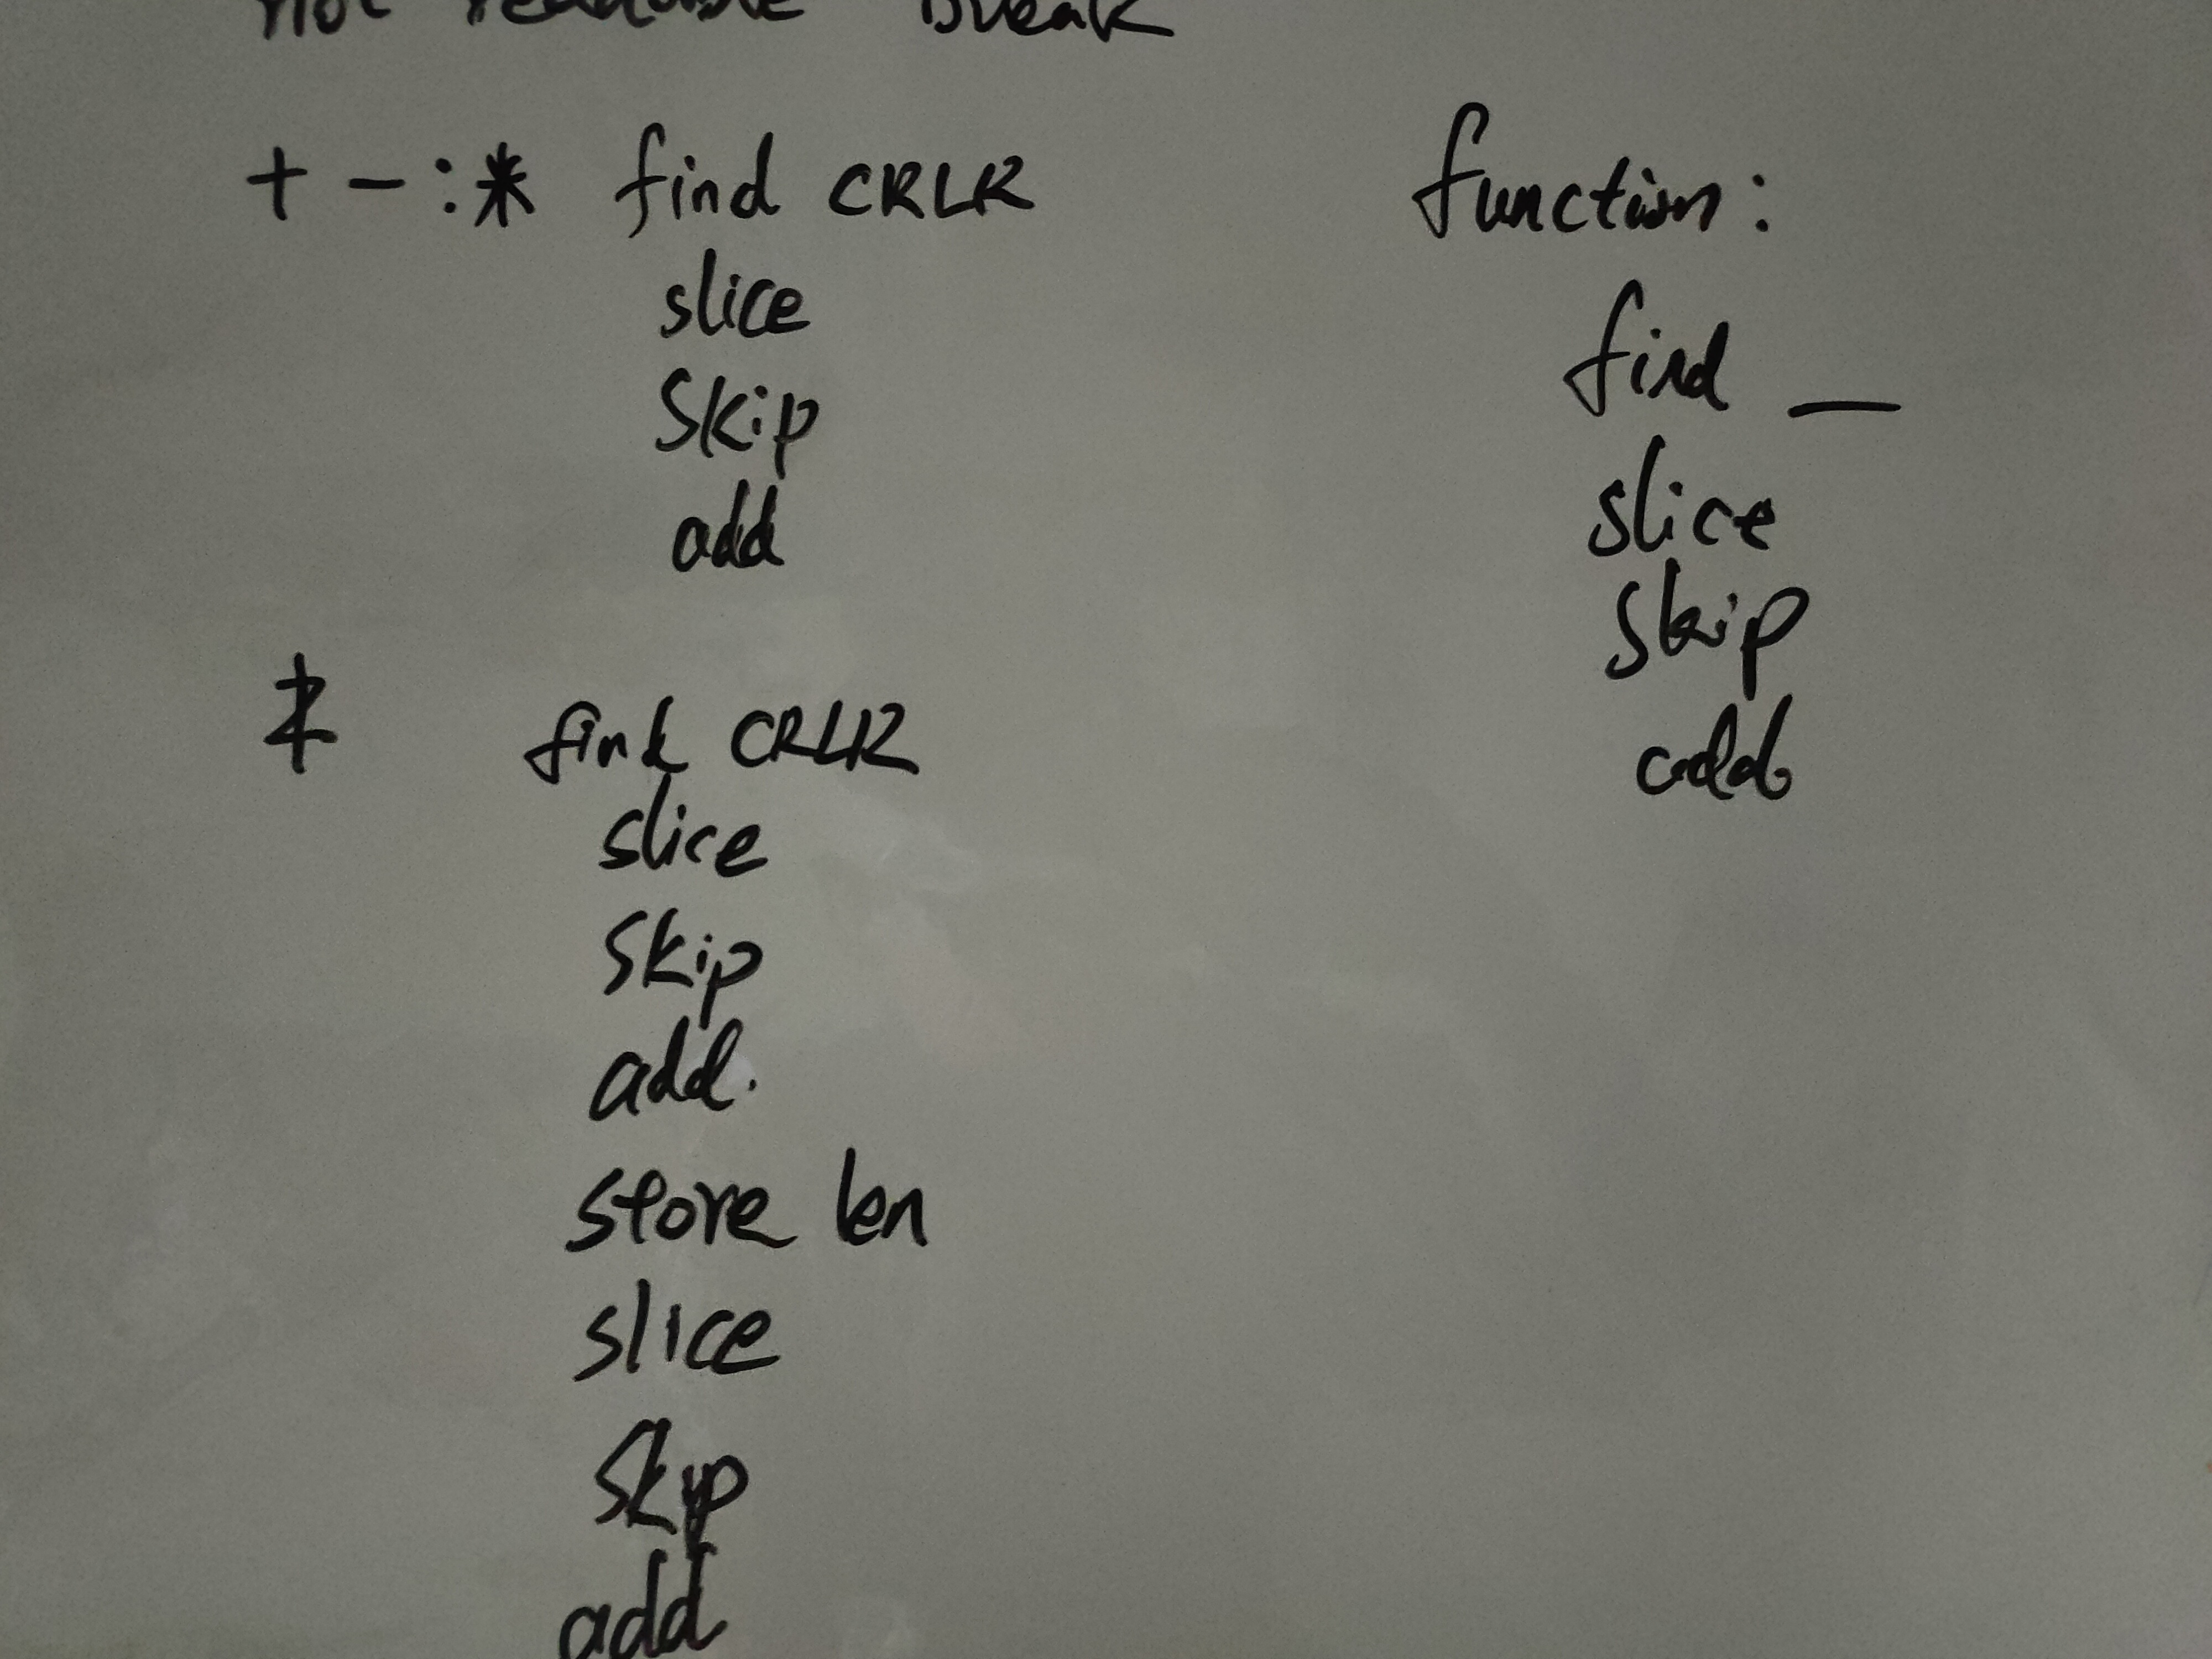 not readable break
+ - : * find CRLR
slice
Skip
add
$ find CRLR
slice
Skip
add.
store len
slice
Skip
add
function:
find _
slice
skip
add